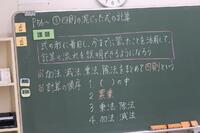 P26～ ①四則の混じった式の計算
課題
式の形に着目し、今までに習ったことを活用して、
計算の流れを説明できるようになろう
加法、減法、乗法、除法をまとめて四則という
計算の順序 1 ( )の中
2 累乗
3 乗法 除法
4 加法 減法